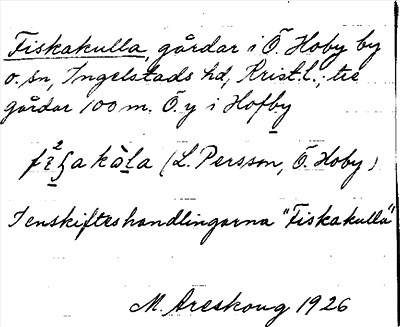 Fiskakulla, gårdar i Ö. Hoby by
o. sn, Ingelstads hd, Krist.l.; tre
gårdar 100 m. Ö. y i Hofby
(L. Persson, Ö. Hoby)
I enskifteshandlingarna "Fiskakulla"
M. Areskoug 1926